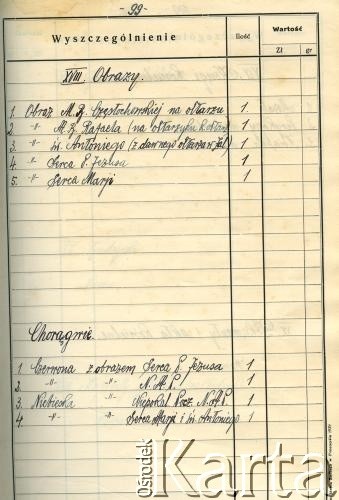 - 99 -
Wyszczególnienie
Ilość
Wartość
Zł
gr
XVIII. Obrazy.
1. Obraz M. B. Częstochowskiej na ołtarzu 1.
2 -"- M. B. Rafaela (na ołtarzyku 1
3 -"- św. Antoniego (z dawnego ołtarza 1
4 -"- Serca P. Jezusa 1
5. -"- Serca Marji 1
Chorągwie.
1. Czerwona z obrazem Serca P. Jezusa 1
2 -"- -"- N. M. P. 1
3. Niebieska -"- Niepokal. Pocz. N. M. P. 1
4 -"- -"- Serca Marji i św. Antoniego 1
ośrodek
Karta